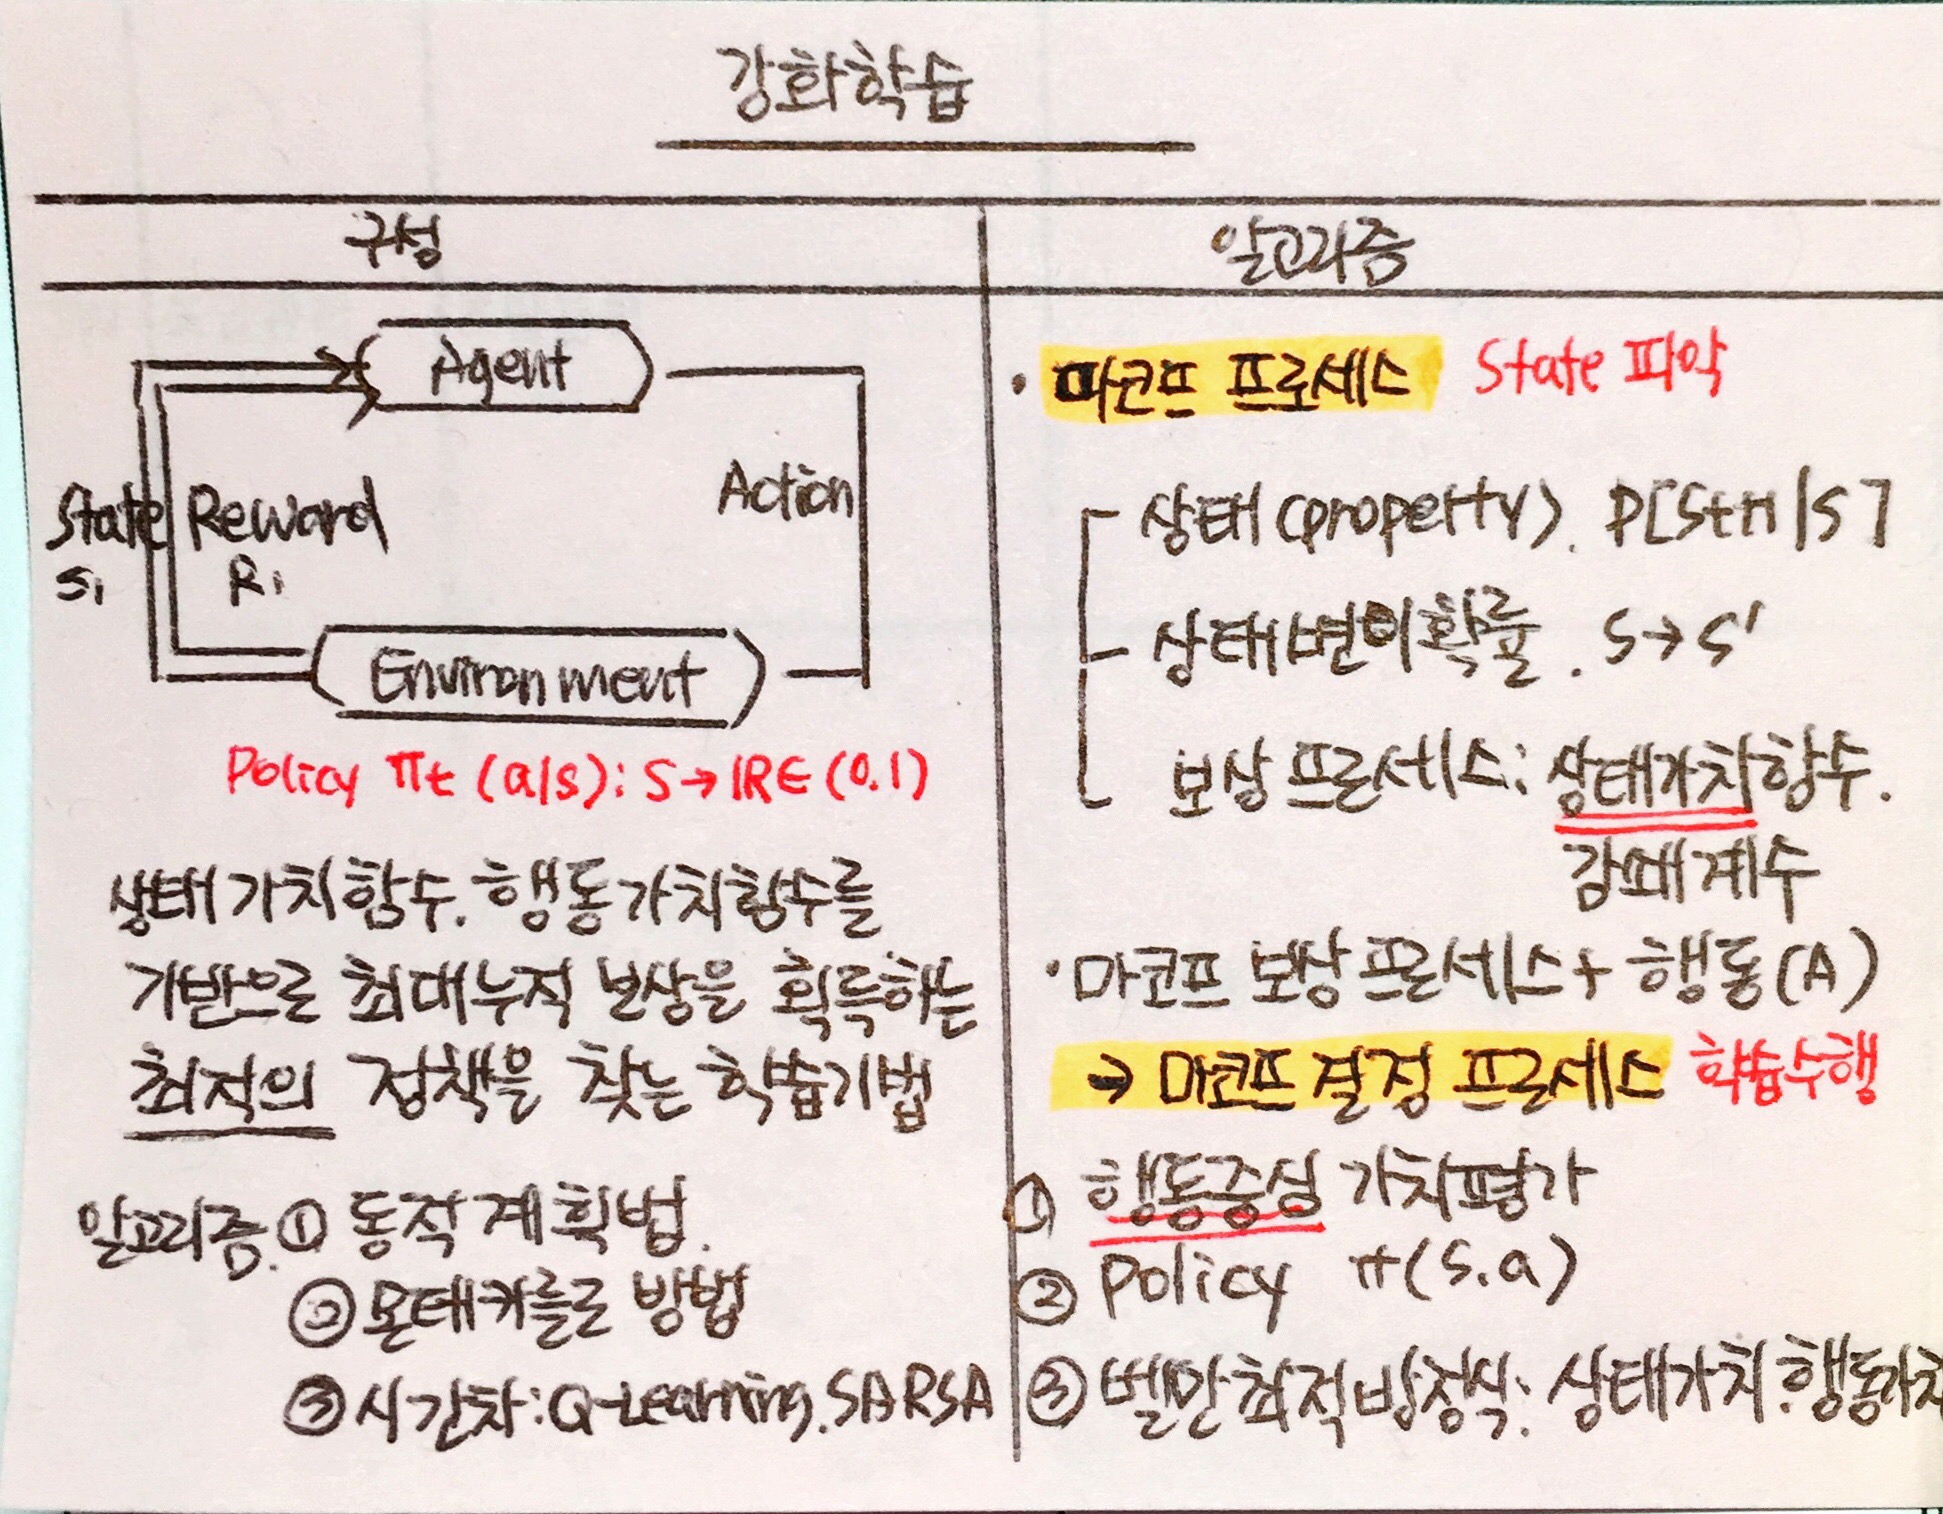 강화학습
구성
Agent
State
Reward
Action
S₁
R₁
Environment
Policy πt (a|s): S→IR∈(0.1)
상태가치함수. 행동가치함수를
기반으로 최대누적 보상을 획득하는
최적의 정책을 찾는 학습기법
알고리즘. ① 동적계획법.
② 몬테카를로 방법
③ 시간차: Q-Learning. SARSA
알고리즘
· 마코프 프로세스 State 파악
상태 (property). P[St+1|S]
상태변이확률. S→S'
보상 프로세스: 상태가치함수.
감쇄계수
· 마코프 보상 프로세스 + 행동(A)
→ 마코프 결정 프로세스 학습수행
① 행동중심 가치평가
② Policy π(s.a)
③ 벨만최적방정식: 상태가치. 행동가치